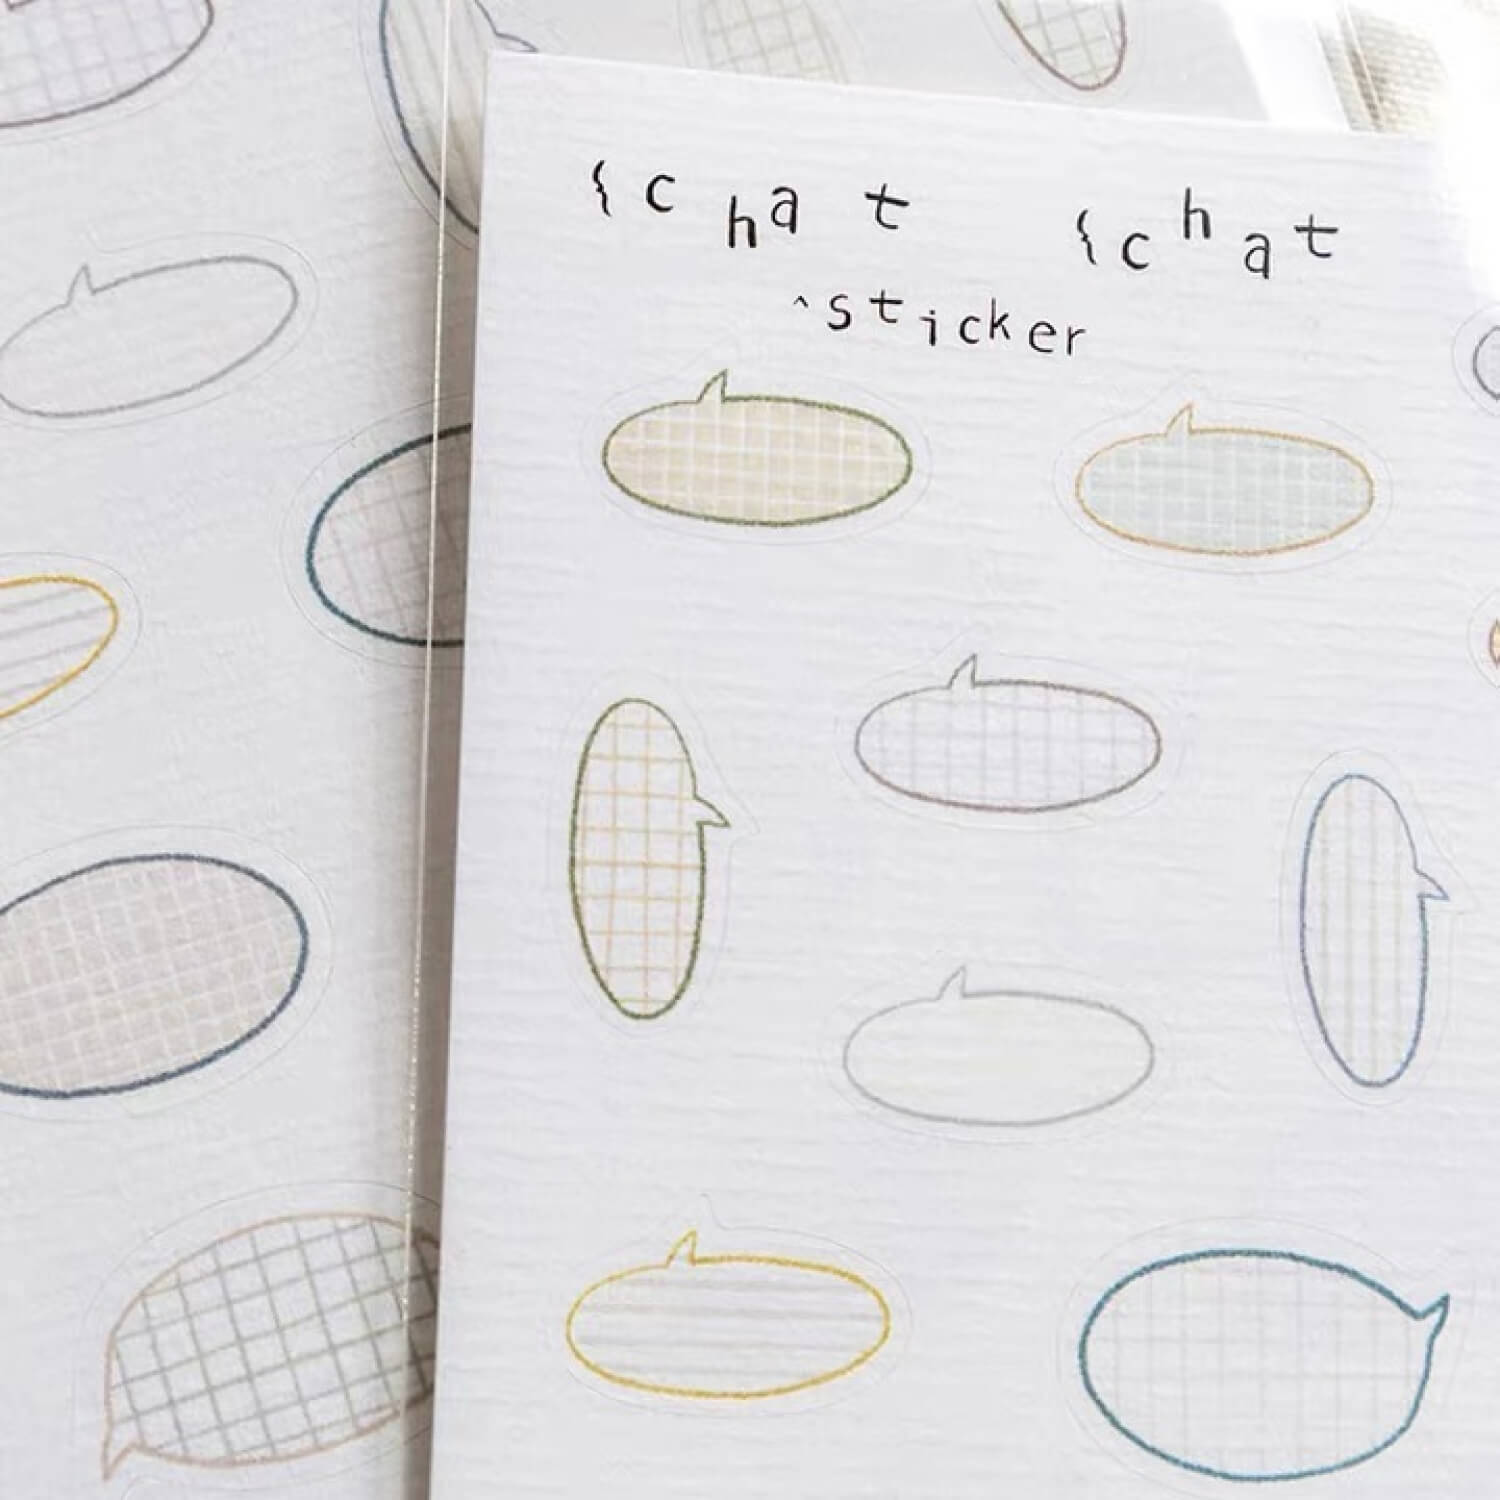 {chat {chat
^sticker